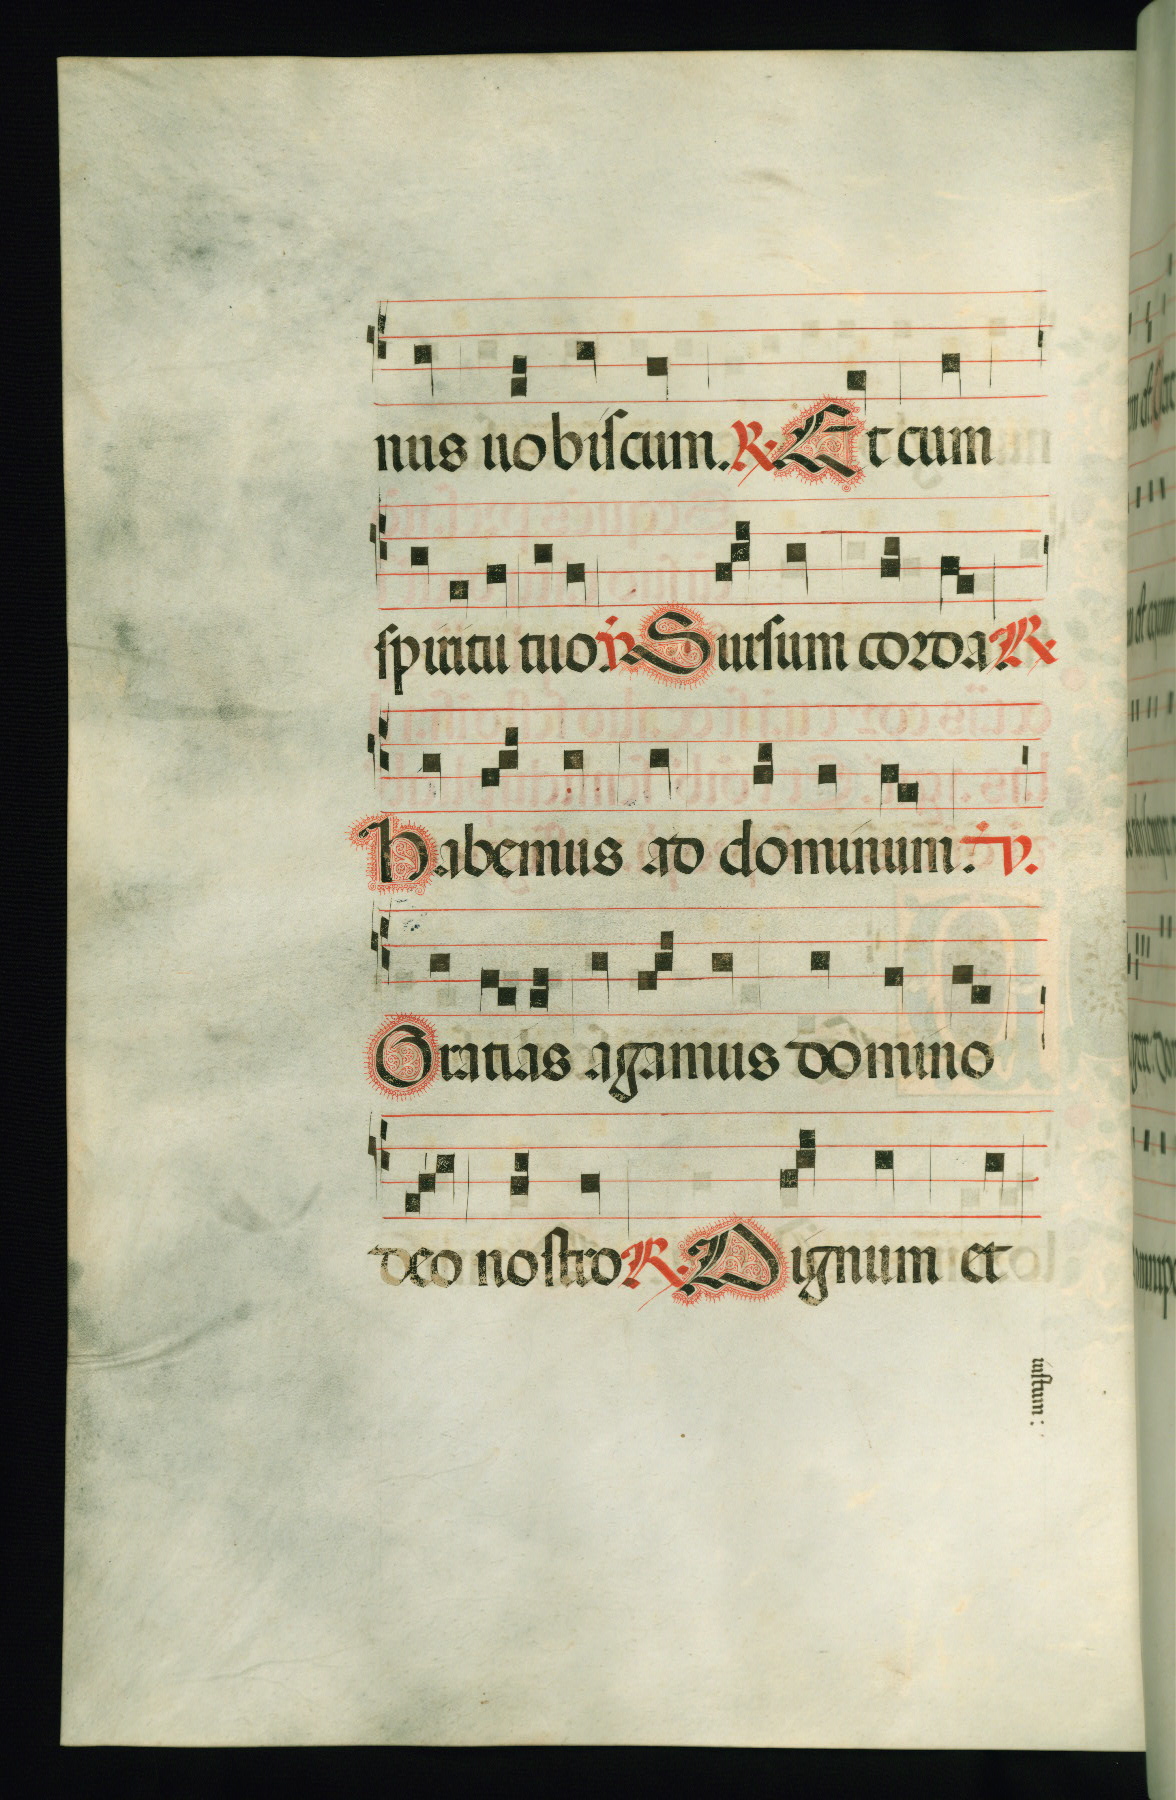 nus uobiscum. R. Et cum
spiritu tuo. V. Sursum corda. R.
Habemus ad dominum. V.
Gratias agamus domino
deo nostro R. Dignum et
iustum: